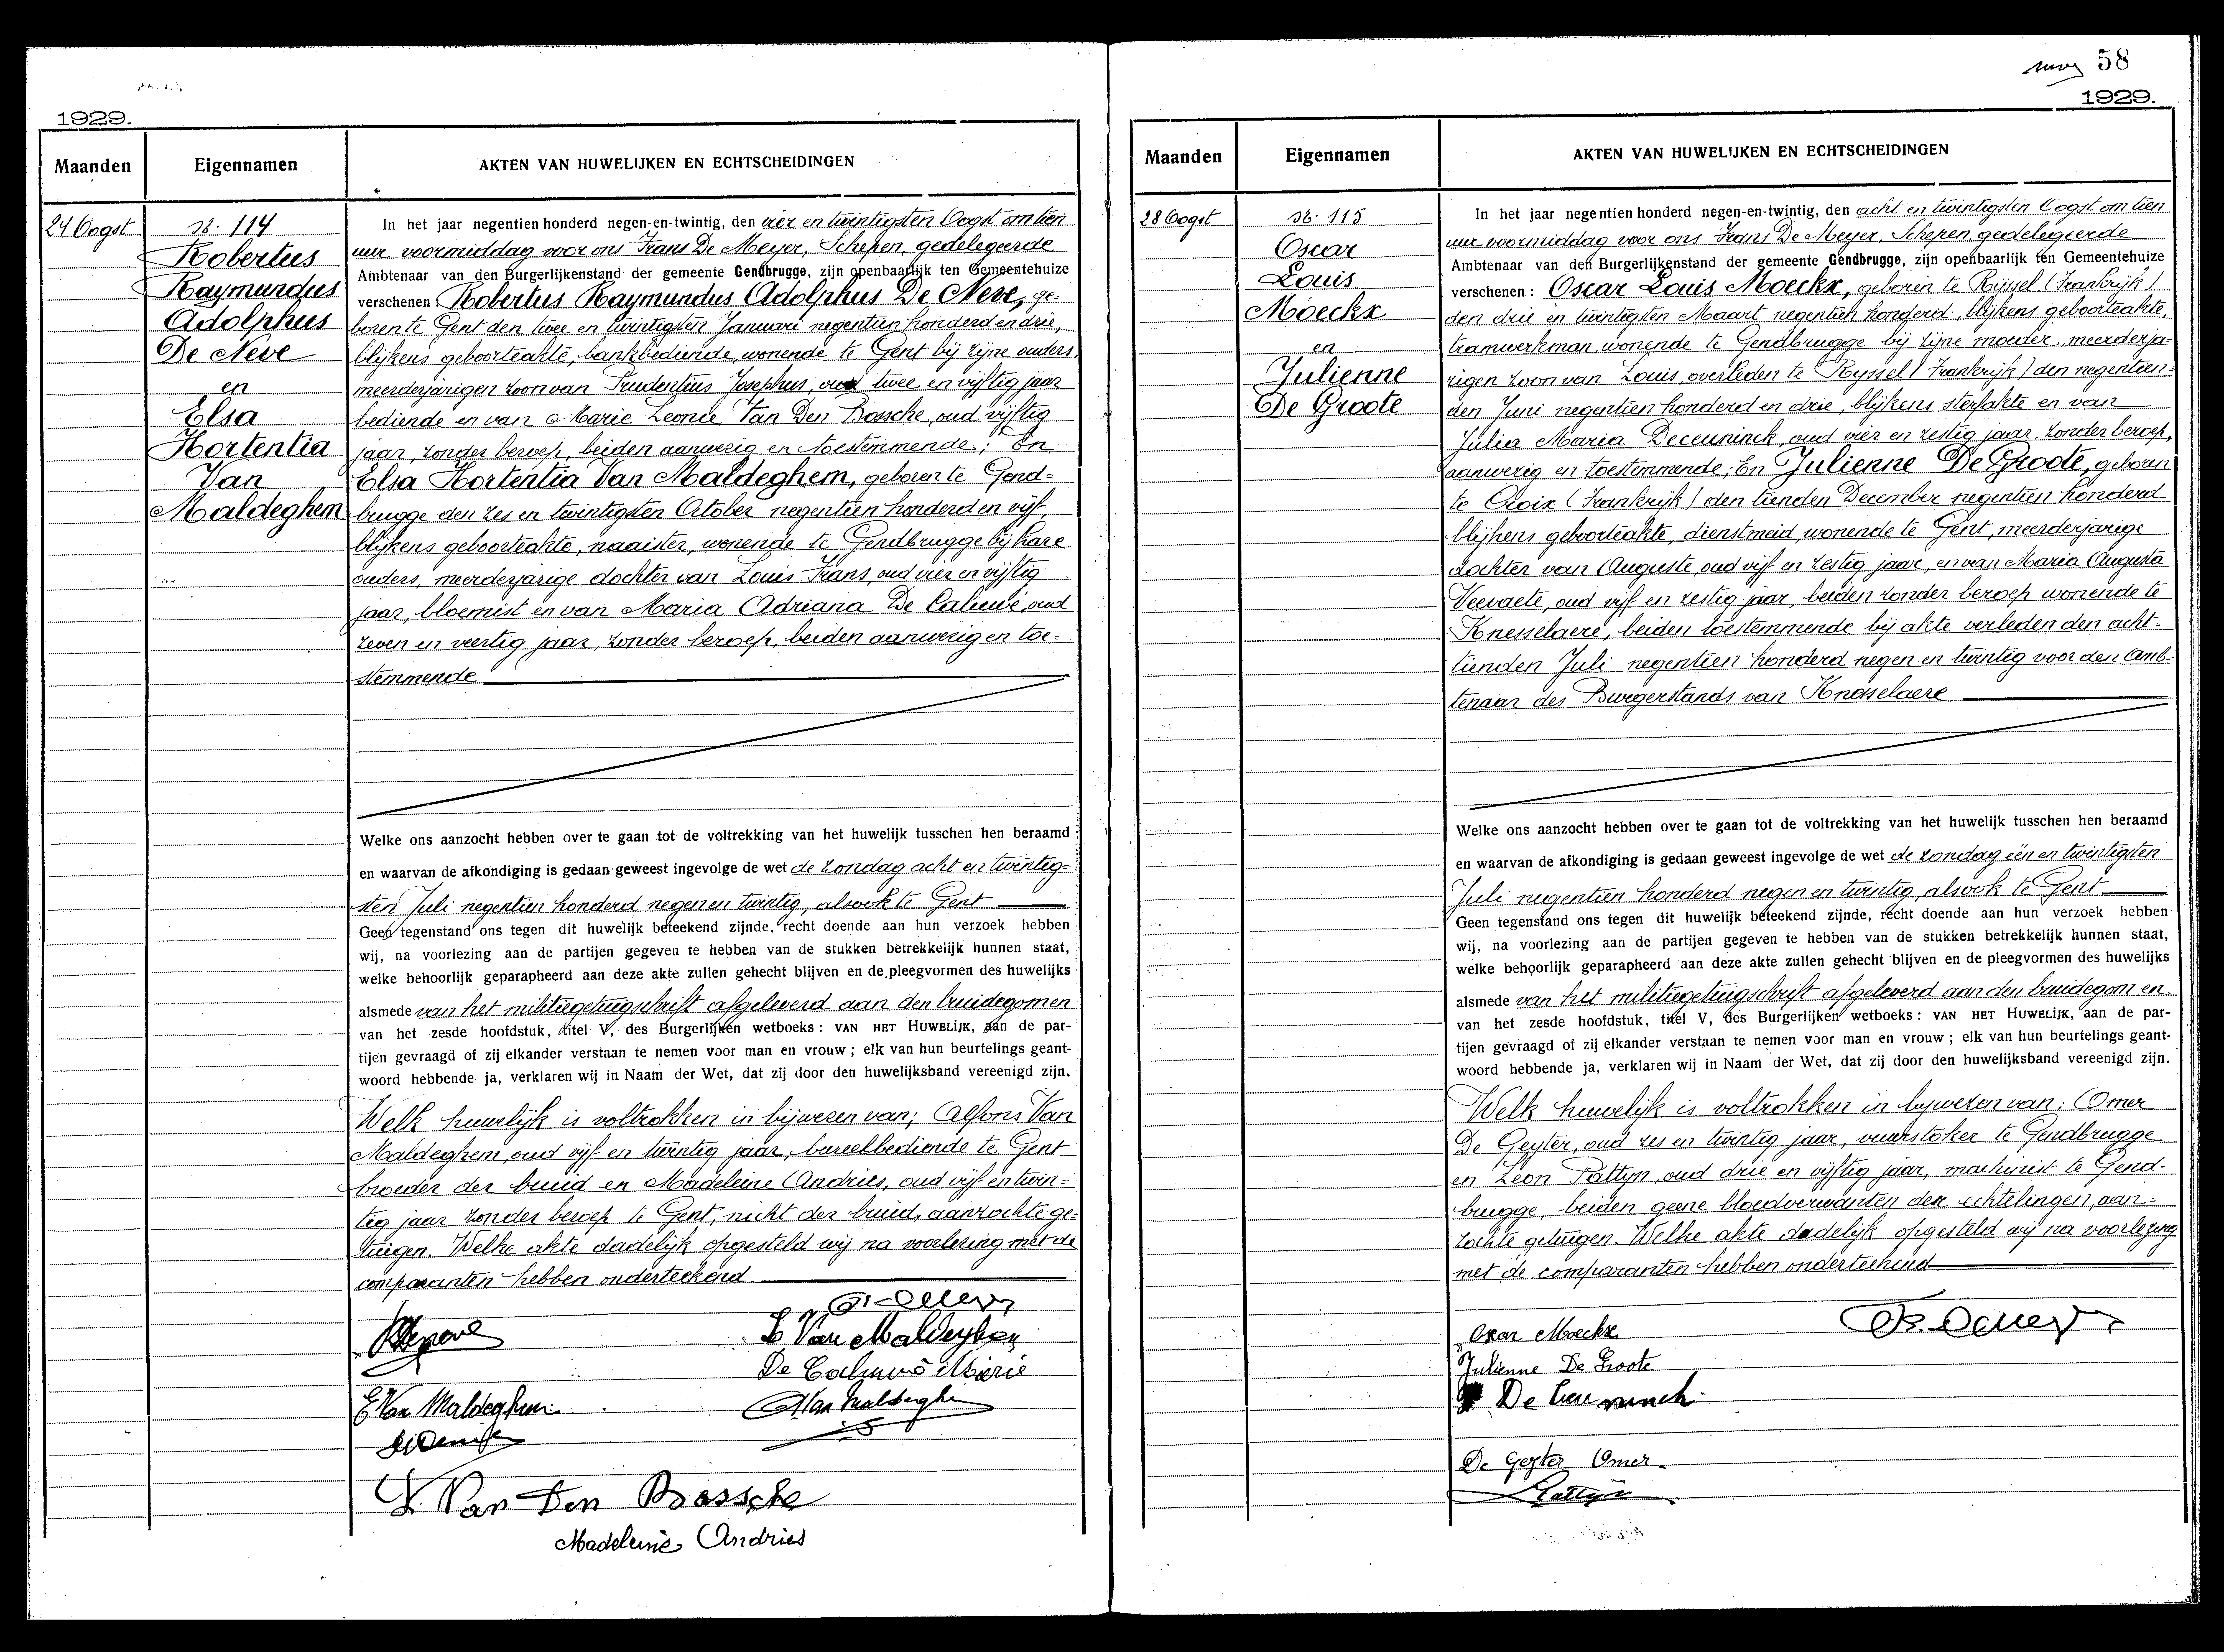 1929.
Maanden
Eigennamen
AKTEN VAN HUWELIJKEN EN ECHTSCHEIDINGEN
24 Oogst
N. 114
Robertus
Raymundus
Adolphus
De Neve
en
Elsa
Hortentia
Van
Maldeghem
In het jaar negentien honderd negen-en-twintig, den vier en twintigsten Oogst om tien
uur voormiddag voor ons Frans De Meyer, Schepen, gedelegeerde
Ambtenaar van den Burgerlijkenstand der gemeente Gendbrugge, zijn openbaarlijk ten Gemeentehuize
verschenen : Robertus Raymundus Adolphus De Neve, ge-
boren te Gent den twee en twintigsten Januari negentien honderd en drie,
blijkens geboorteakte, bankbediende, wonende te Gent bij zijne ouders,
meerderjarigen zoon van Prudentius Josephus, oud twee en vijftig jaar
bediende en van Marie Leonie Van Den Bossche, oud vijftig
jaar, zonder beroep, beiden aanwezig en toestemmende ; En
Elsa Hortentia Van Maldeghem, geboren te Gend=
brugge den zes en twintigsten October negentien honderd en vijf,
blijkens geboorteakte, naaister, wonende te Gendbrugge bij hare
ouders, meerderjarige dochter van Louis Frans oud vier en vijftig
jaar, bloemist en van Maria Adriana De Caluwé, oud
zeven en veertig jaar, zonder beroep, beiden aanwezig en toe=
stemmende
Welke ons aanzocht hebben over te gaan tot de voltrekking van het huwelijk tusschen hen beraamd
en waarvan de afkondiging is gedaan geweest ingevolge de wet de zondag acht en twintig=
sten Juli negentien honderd negen en twintig, alsook te Gent
Geen tegenstand ons tegen dit huwelijk beteekend zijnde, recht doende aan hun verzoek hebben
wij, na voorlezing aan de partijen gegeven te hebben van de stukken betrekkelijk hunnen staat,
welke behoorlijk geparapheerd aan deze akte zullen gehecht blijven en de pleegvormen des huwelijks
alsmede van het militiegetuigschrift afgeleverd aan den bruidegom en
van het zesde hoofdstuk, titel V, des Burgerlijken wetboeks : VAN HET HUWELIJK, aan de par-
tijen gevraagd of zij elkander verstaan te nemen voor man en vrouw ; elk van hun beurtelings geant-
woord hebbende ja, verklaren wij in Naam der Wet, dat zij door den huwelijksband vereenigd zijn.
Welk huwelijk is voltrokken in bijwezen van ; Alfons Van
Maldeghem, oud vijf en twintig jaar, bureelbediende te Gent
broeder der bruid en Madeleine Andries, oud vijf en twin=
tig jaar zonder beroep te Gent, nicht der bruid, aanzochte ge-
tuigen. Welke akte dadelijk opgesteld wij na voorlezing met de
comparanten hebben onderteekend
L Van Maldeghem
De Caluwé Marie
E Van Maldeghem
A Van Maldeghem
L. Van Den Bossche
Madeleine Andries
58
1929.
Maanden
Eigennamen
AKTEN VAN HUWELIJKEN EN ECHTSCHEIDINGEN
28 Oogst
N. 115
Oscar
Louis
Moeckx
en
Julienne
De Groote
In het jaar negentien honderd negen-en-twintig, den acht en twintigsten Oogst om tien
uur voormiddag voor ons Frans De Meyer, Schepen, gedelegeerde
Ambtenaar van den Burgerlijkenstand der gemeente Gendbrugge, zijn openbaarlijk ten Gemeentehuize
verschenen : Oscar Louis Moeckx, geboren te Rijssel (Frankrijk)
den drie en twintigsten Maart negentien honderd, blijkens geboorteakte,
tramwerkman, wonende te Gendbrugge bij zijne moeder, meerderja-
rigen zoon van Louis, overleden te Ryssel (Frankrijk) den negentien-
den Juni negentien honderd en drie, blijkens sterfakte en van
Julia Maria Deceuninck, oud vier en zestig jaar, zonder beroep,
aanwezig en toestemmende ; En Julienne De Groote, geboren
te Croix (Frankrijk) den tienden December negentien honderd
blijkens geboorteakte, dienstmeid, wonende te Gent, meerderjarige
dochter van Auguste, oud vijf en zestig jaar, en van Maria Augusta
Veevaete, oud vijf en zestig jaar, beiden zonder beroep wonende te
Knesselaere, beiden toestemmende bij akte verleden den acht-
tienden Juli negentien honderd negen en twintig voor den Amb-
tenaar des Burgerstands van Knesselaere
Welke ons aanzocht hebben over te gaan tot de voltrekking van het huwelijk tusschen hen beraamd
en waarvan de afkondiging is gedaan geweest ingevolge de wet de zondag één en twintigsten
Juli negentien honderd negen en twintig, alsook te Gent
Geen tegenstand ons tegen dit huwelijk beteekend zijnde, recht doende aan hun verzoek hebben
wij, na voorlezing aan de partijen gegeven te hebben van de stukken betrekkelijk hunnen staat,
welke behoorlijk geparapheerd aan deze akte zullen gehecht blijven en de pleegvormen des huwelijks
alsmede van het militiegetuigschrift afgeleverd aan den bruidegom en
van het zesde hoofdstuk, titel V, des Burgerlijken wetboeks : VAN HET HUWELIJK, aan de par-
tijen gevraagd of zij elkander verstaan te nemen voor man en vrouw ; elk van hun beurtelings geant-
woord hebbende ja, verklaren wij in Naam der Wet, dat zij door den huwelijksband vereenigd zijn.
Welk huwelijk is voltrokken in bijwezen van : Omer
De Geyter, oud zes en twintig jaar, vuurstoker te Gendbrugge
en Leon Pattyn, oud drie en vijftig jaar, machinist te Gend-
brugge, beiden geene bloedverwanten der echtelingen, aan=
zochte getuigen. Welke akte dadelijk opgesteld wij na voorlezing
met de comparanten hebben onderteekend
Oscar Moeckx
Julienne De Groote
De Ceuninck
De Geyter Omer
Pattyn